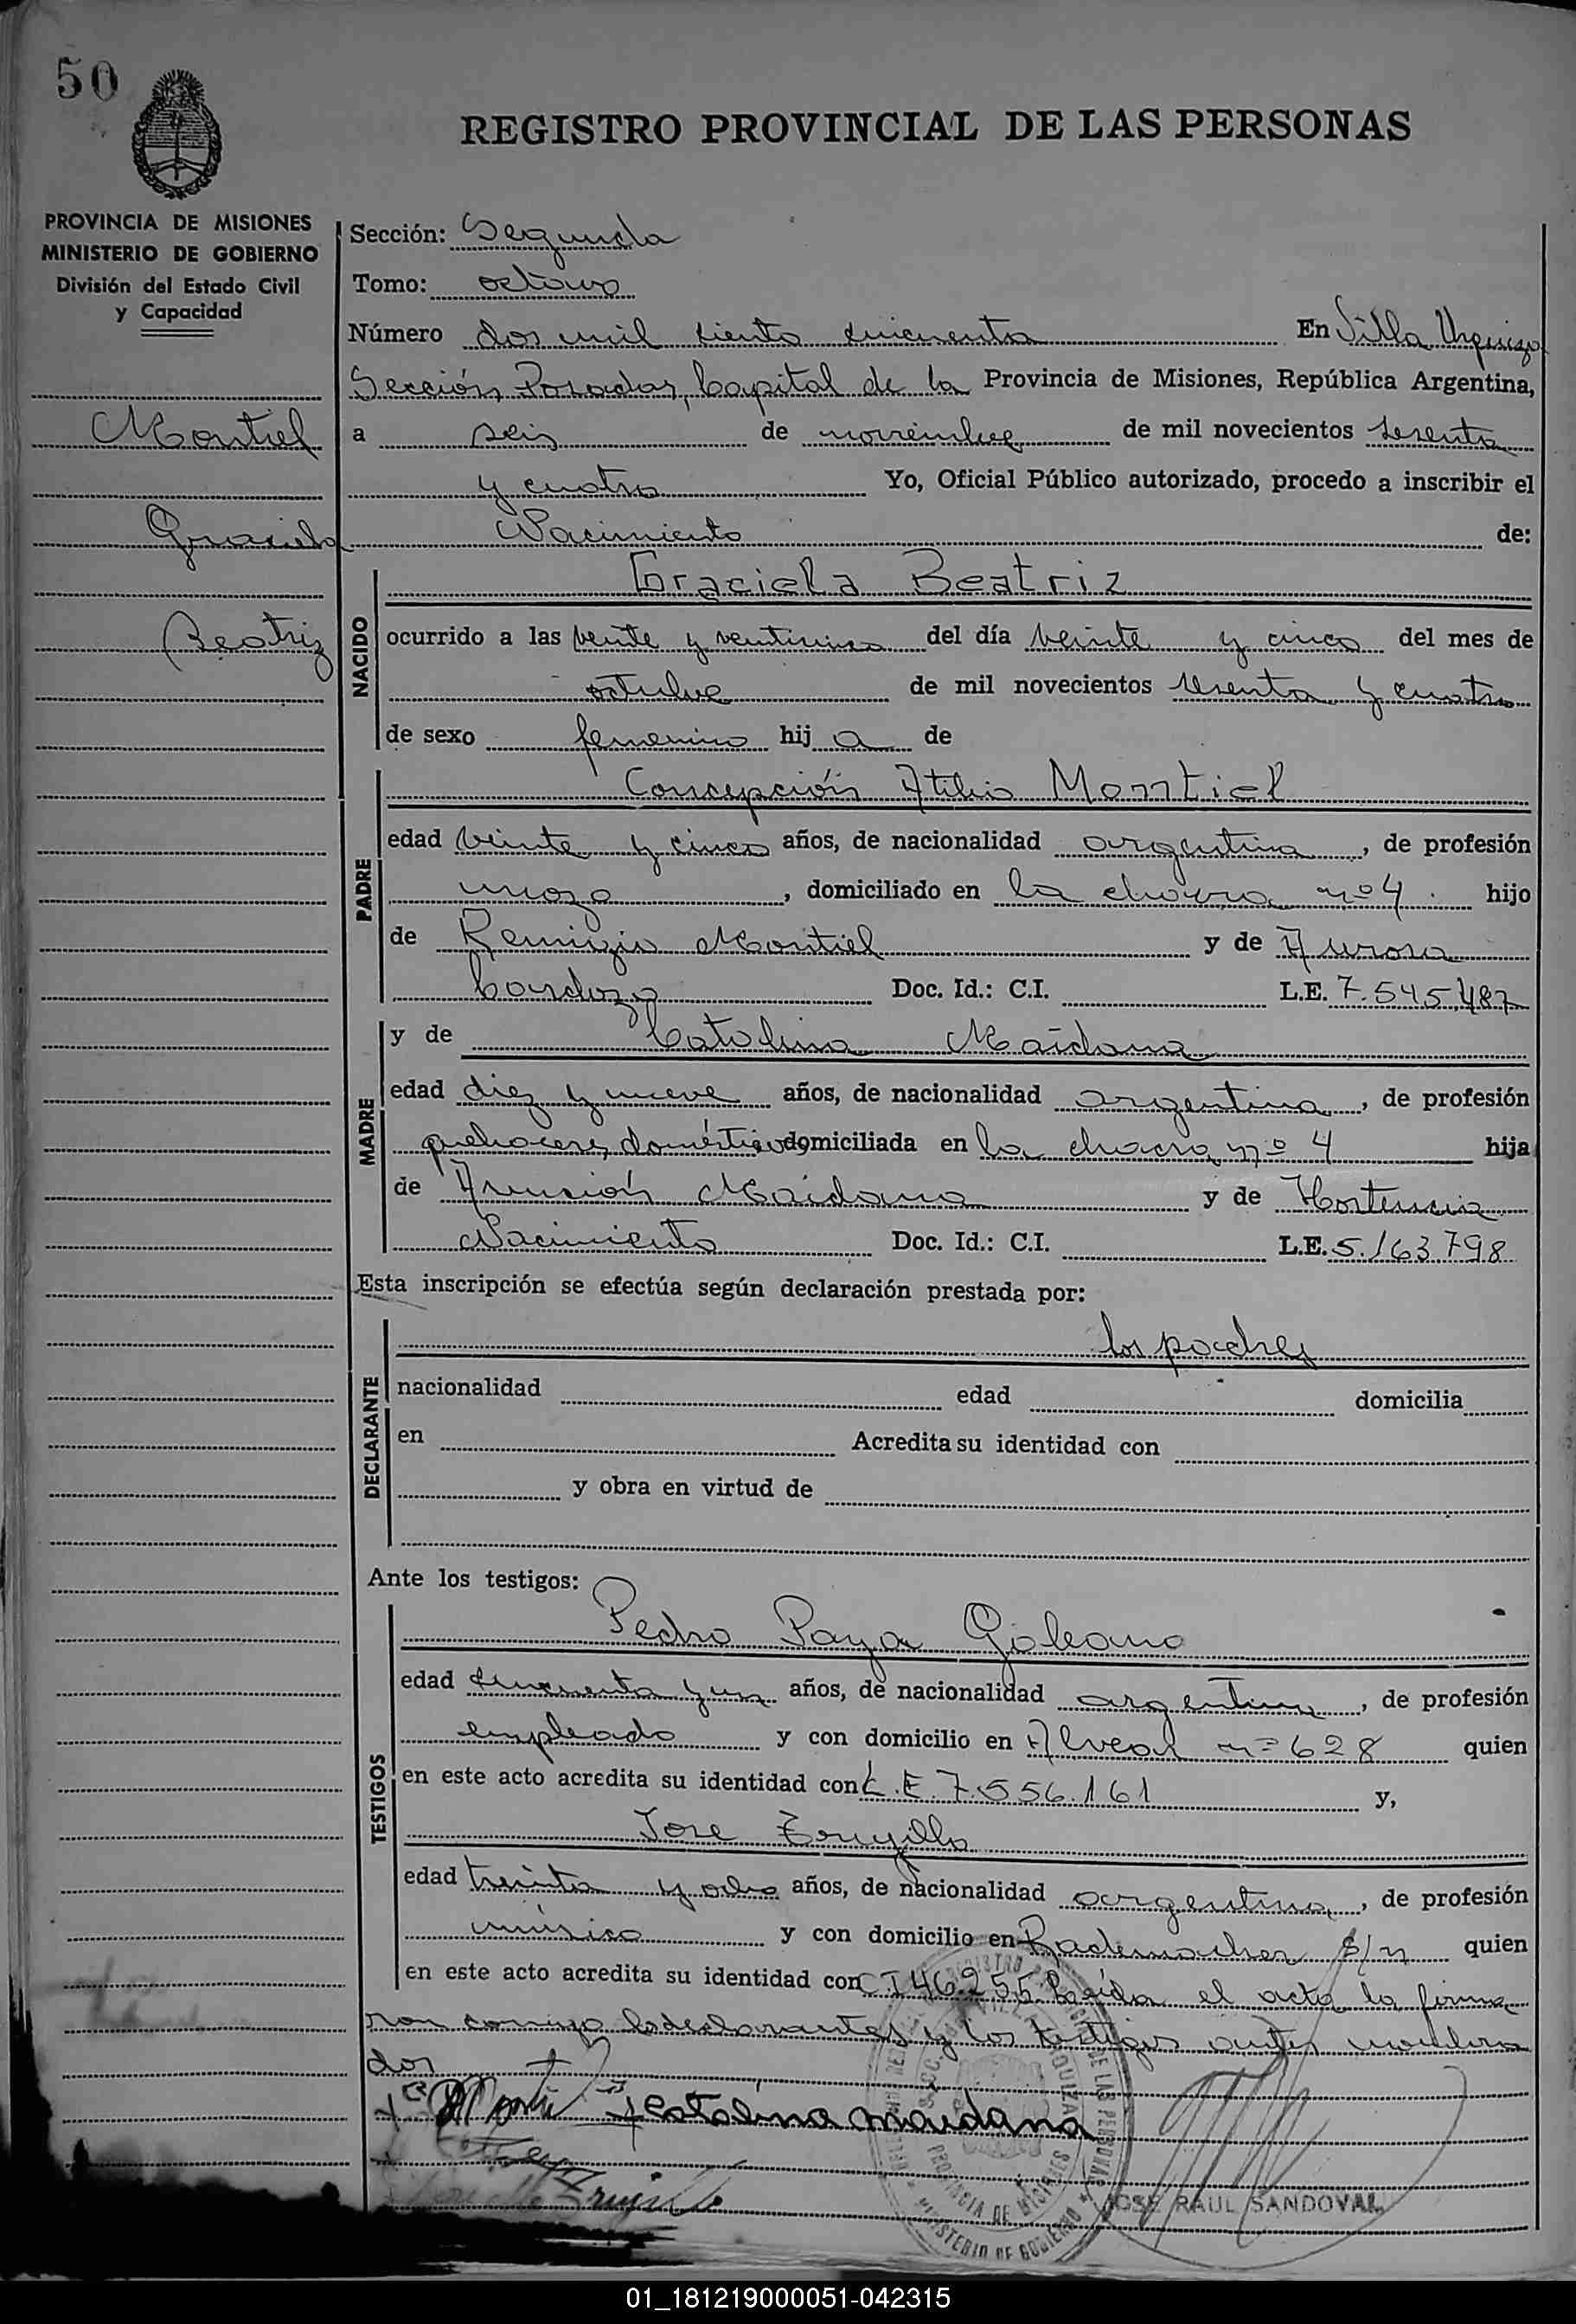 50
REGISTRO PROVINCIAL DE LAS PERSONAS
PROVINCIA DE MISIONES
MINISTERIO DE GOBIERNO
División del Estado Civil
y Capacidad
Montiel
Graciela
Beatriz
Sección: Segunda
Tomo: octavo
Número dos mil ciento cincuenta En Villa Urquiza
Sección Posadas, Capital de la Provincia de Misiones, República Argentina,
a seis de noviembre de mil novecientos sesenta
y cuatro Yo, Oficial Público autorizado, procedo a inscribir el
Nacimiento de:
NACIDO
Graciela Beatriz
ocurrido a las veinte y del día veinte y cinco del mes de
octubre de mil novecientos sesenta y cuatro
de sexo femenino hij a de
PADRE
Concepción Atilio Montiel
edad veinte y cinco años, de nacionalidad argentina, de profesión
mozo, domiciliado en la chacra nº 4. hijo
de Remigio Montiel y de Aurora
Cardozo Doc. Id.: C.I. L.E. 7.545.487
MADRE
y de Catalina Maidana
edad diez y nueve años, de nacionalidad argentina, de profesión
quehaceres domésticos domiciliada en la chacra nº 4 hija
de Asunción Maidana y de Hortencia
Nacimiento Doc. Id.: C.I. L.E. 5.163.798
Esta inscripción se efectúa según declaración prestada por:
DECLARANTE
los padres
nacionalidad edad domicilia
en Acredita su identidad con
y obra en virtud de
Ante los testigos:
TESTIGOS
Pedro Paya Galeano
edad cincuenta y un años, de nacionalidad argentina, de profesión
empleado y con domicilio en Alvear nº 628 quien
en este acto acredita su identidad con L.E. 7.556.161 y,
Jose Trujillo
edad treinta y ocho años, de nacionalidad argentina, de profesión
músico y con domicilio en Rademacher s/n quien
en este acto acredita su identidad con C I 46.255. Leída el acta la firma
ron conmigo los declarantes y los testigos antes nombra
dos
Catalina maidana
Trujillo
JOSE RAUL SANDOVAL
PROVINCIA DE MISIONES
MINISTERIO DE GOBIERNO
01_181219000051-042315